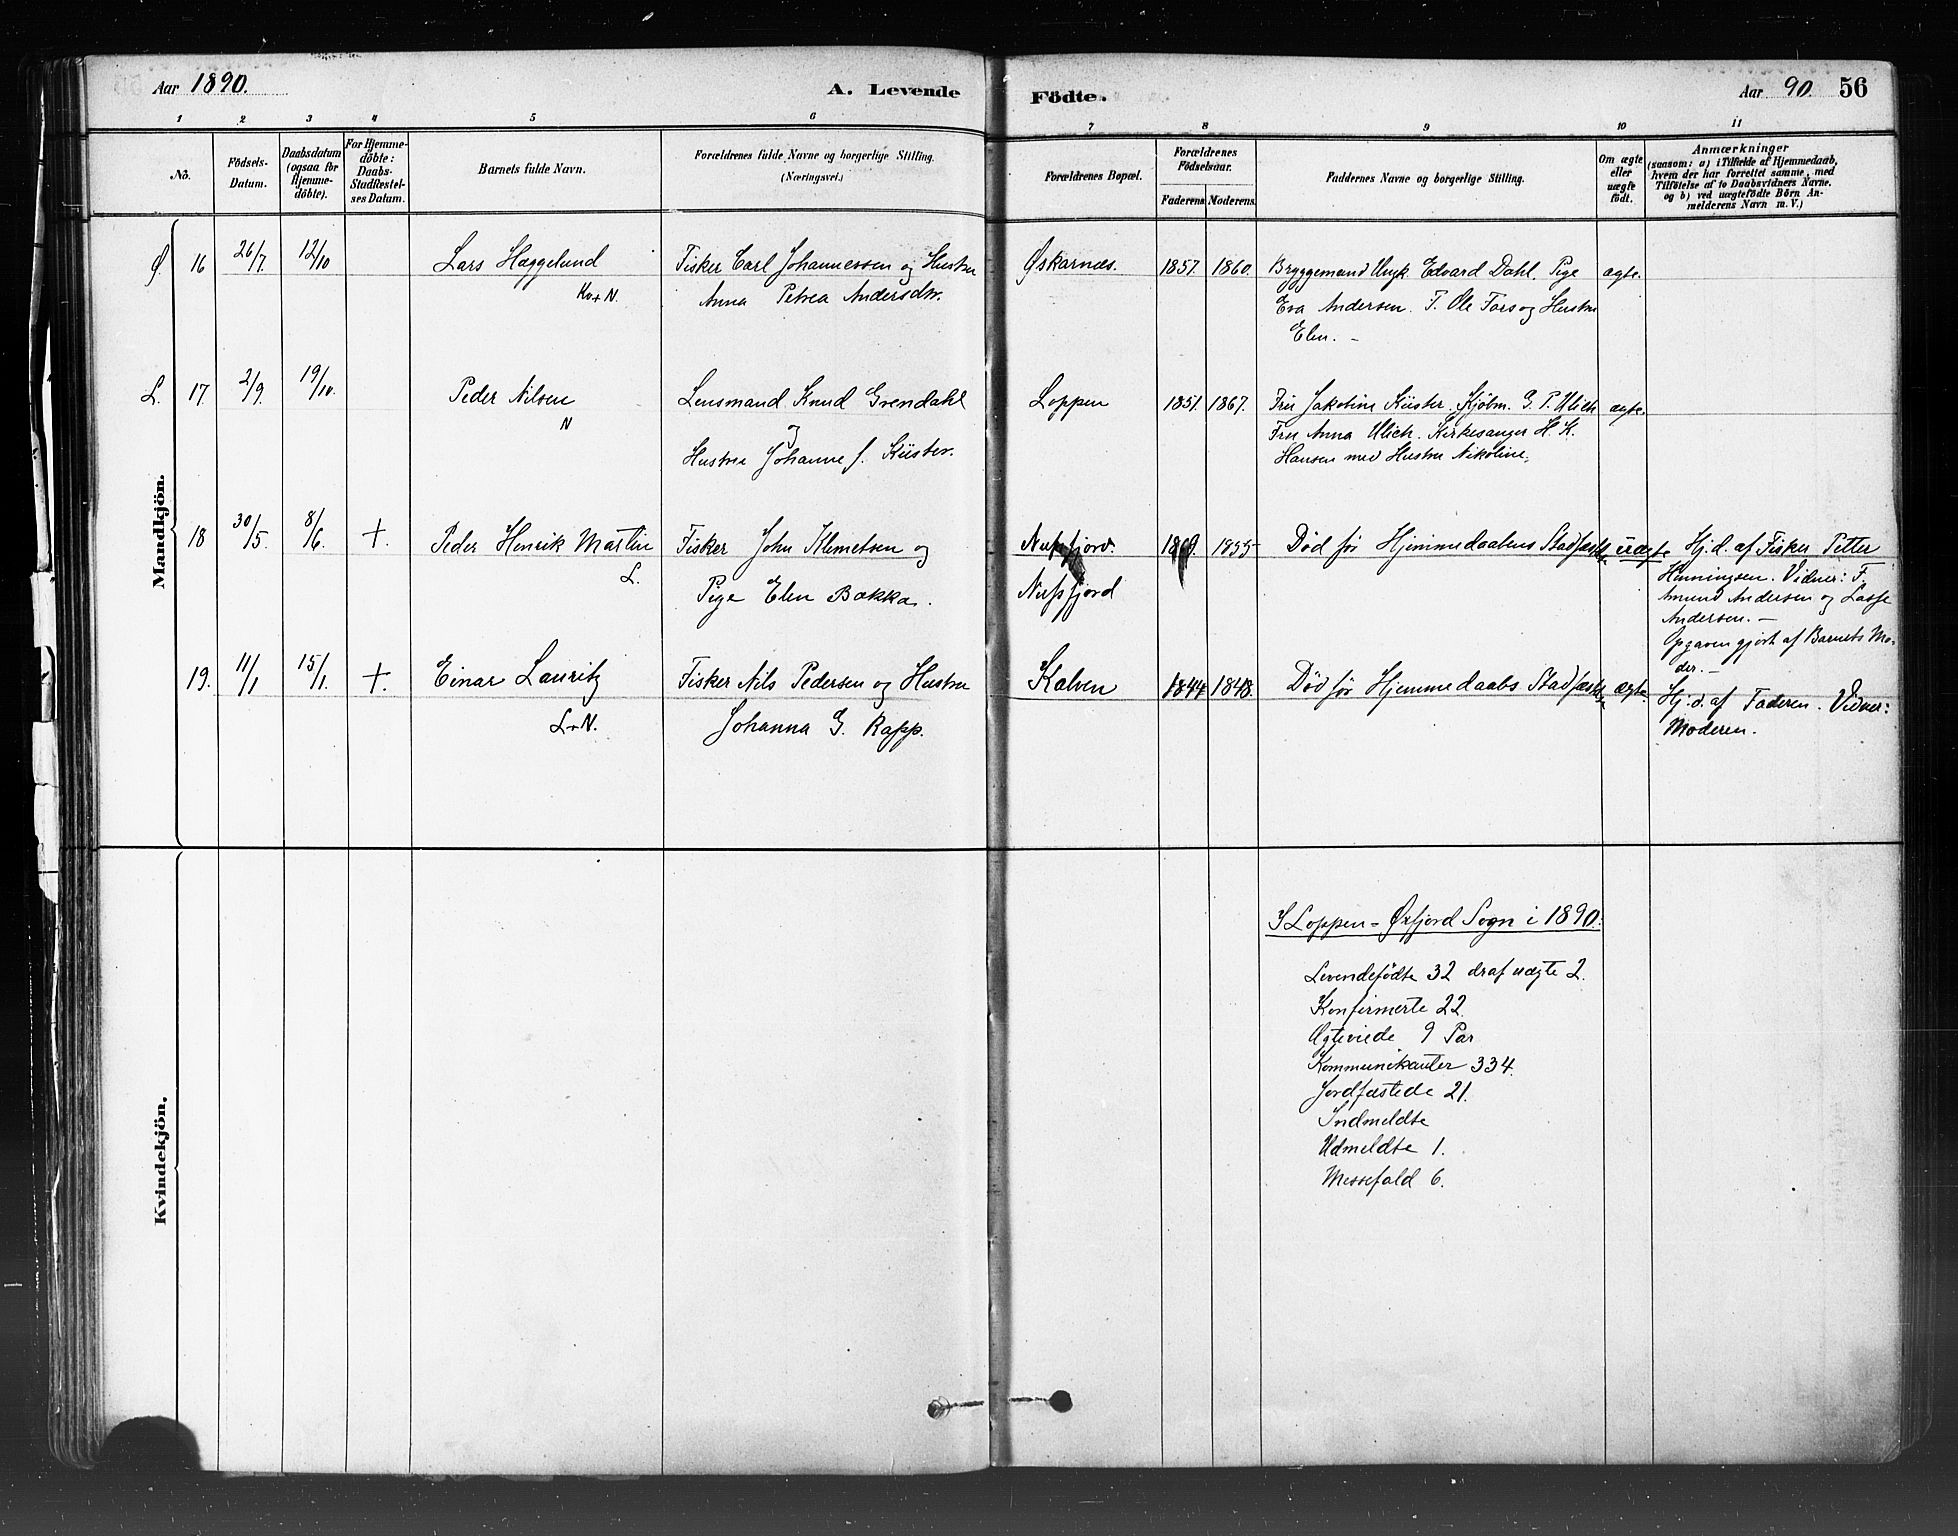 Aar 1890.
A. Levende
Födte.
Aar 90. 56
1 2 3 4 5 6 7 8 9 10 11
No.
Födsels-
Datum.
Daabsdatum
(ogsaa for
Hjemme-
döbte).
For Hjemme-
döbte:
Daabs-
Stadfæstel-
ses Datum.
Barnets fulde Navn.
Forældrenes fulde Navne og borgerlige Stilling.
(Næringsvei.)
Forældrenes Bopæl.
Forældrenes
Födselsaar.
Faderens Moderens.
Faddernes Navne og borgerlige Stilling.
Om ægte
eller
uægte
födt.
Anmærkninger
(saasom: a) i Tilfælde af Hjemmedaab,
hvem der har forrettet samme, med
Tilföielse af to Daabsvidners Navne.
og b) ved uægtefödte Börn An-
melderens Navn m. V.)
Mandkjön.
Ø. 16 26/7 12/10 Lars Hæggelund Fisker Carl Johannessen og Hustru Øskarnæs. 1857. 1860. Bryggemand Edvard Dahl. Pige ægte.
Kv+N. Anna Petrea Andersdtr. Eva Andersen. F. Ole Fors og Hustru
Elen. -
L. 17 2/9. 19/10. Peder Nilsen Lensmand Knud Grendahl Loppen 1851. 1867. Fru Jakobine Küster. Kjøbm. G. P. Ulich ægte.
N og Fru Anna Ulich. Kirkesanger H. K.
Hustru Johanne J. Küster. Hansen med Hustru Nikoline.
18 30/5. 8/6. +. Peder Henrik Martin Fisker John Klemetsen og Nufsfjord. 1855 Død før Hjemmedaabens Stadfæst. uægte Hj.d. af Fisker Petter
L. Pige Elen Bakka. Nufsfjord Henningsen. Vidner: F.
Amund Andersen og Lasse
Andersen. -
Opgaven gjort af Barnets Mo-
der. -
19. 11/1 15/1. +. Einar Lauritz Fisker Nils Pedersen og Hustru Kalven 1844 1848. Død før Hjemmedaabs Stadfæst. ægte. Hj.d. af Faderen. Vidner:
L+N. Johanna G. Rapp. Moderen.
Kvindekjön.
I Loppen - Øxfjord Sogn i 1890:
Levendefødte 32 draf uægte 2.
Konfirmerte 22.
Ægteviede 9 Par
Kommunikanter 334.
Jordfæstede 21.
Indmeldte
Udmeldte 1.
Messefald 6.